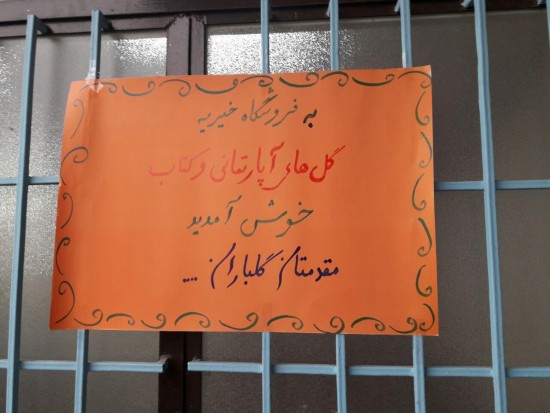 به فروشگاه خیریه
گل های آپارتمانی و کتاب
خوش آمدید
مقدمتان گلباران ...